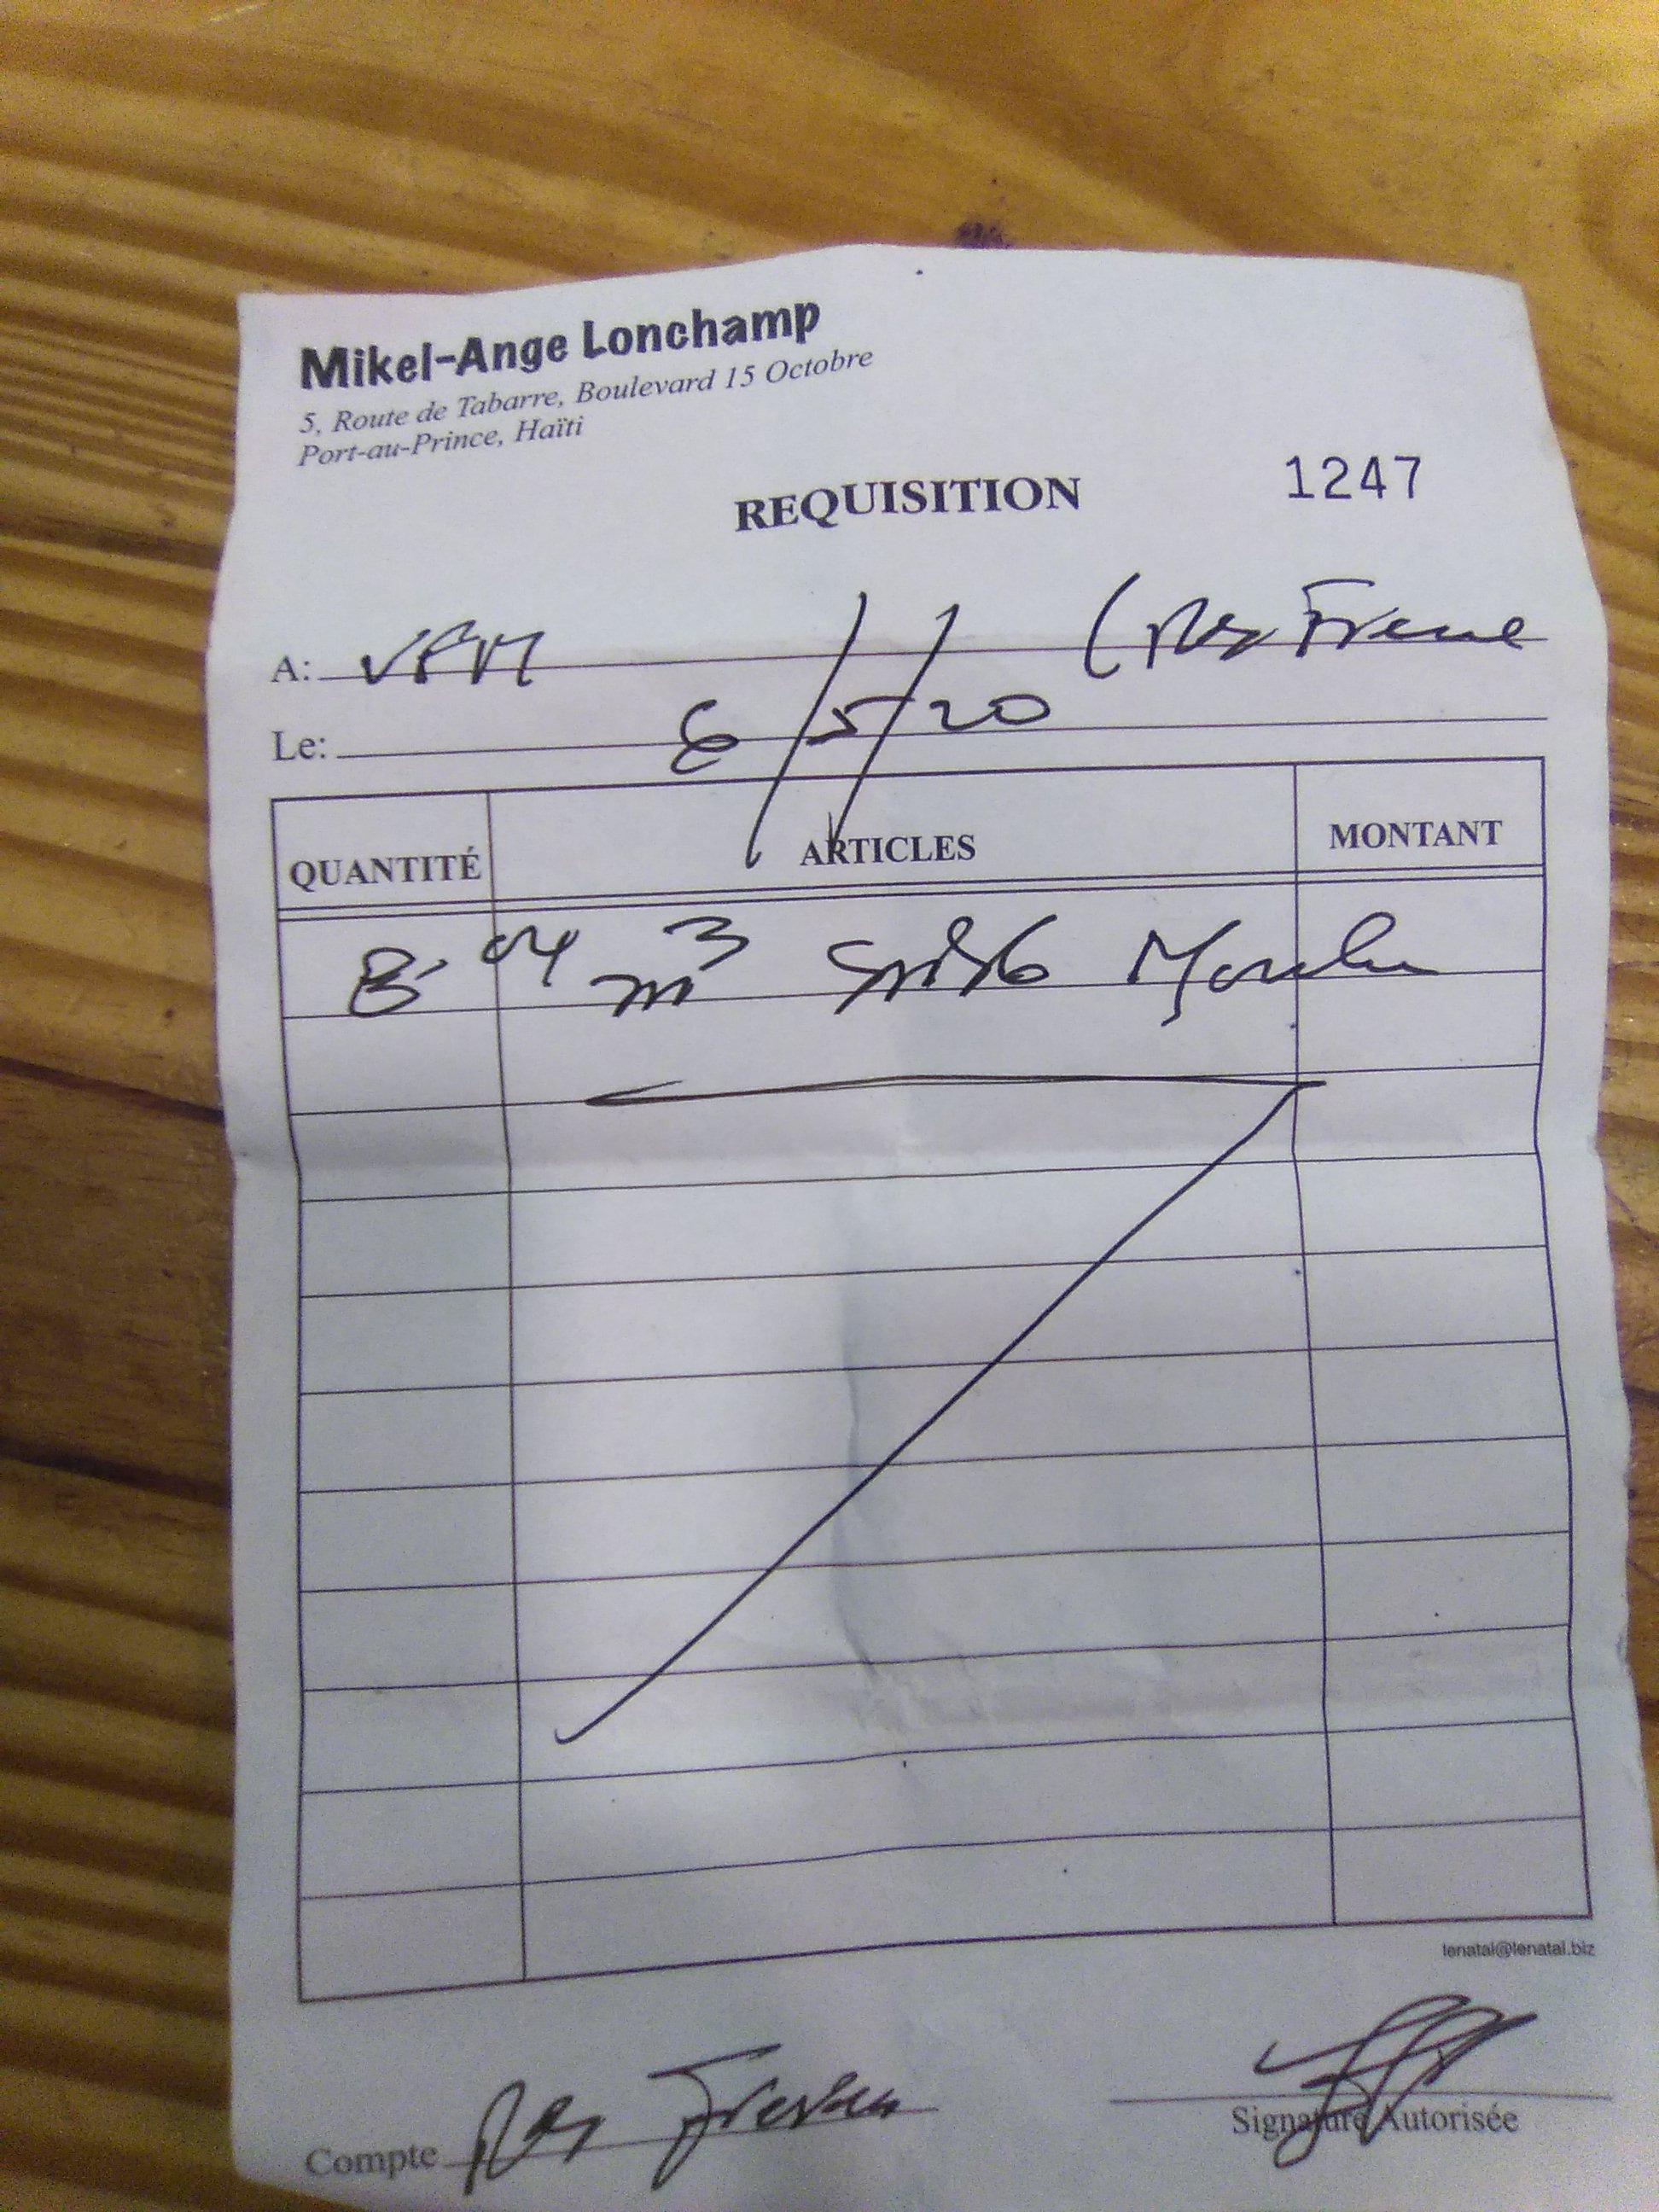 Mikel-Ange Lonchamp
5, Route de Tabarre, Boulevard 15 Octobre
Port-au-Prince, Haïti
REQUISITION 1247
A: VFM
Le: 6/5/20
QUANTITÉ ARTICLES MONTANT
8.04 m³
lenatal@lenatal.biz
Compte
Signature Autorisée